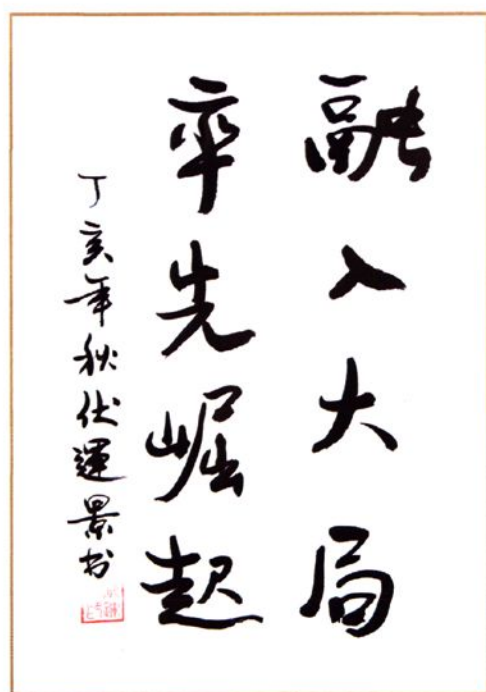 融入大局
率先崛起
丁亥年秋伏運景书